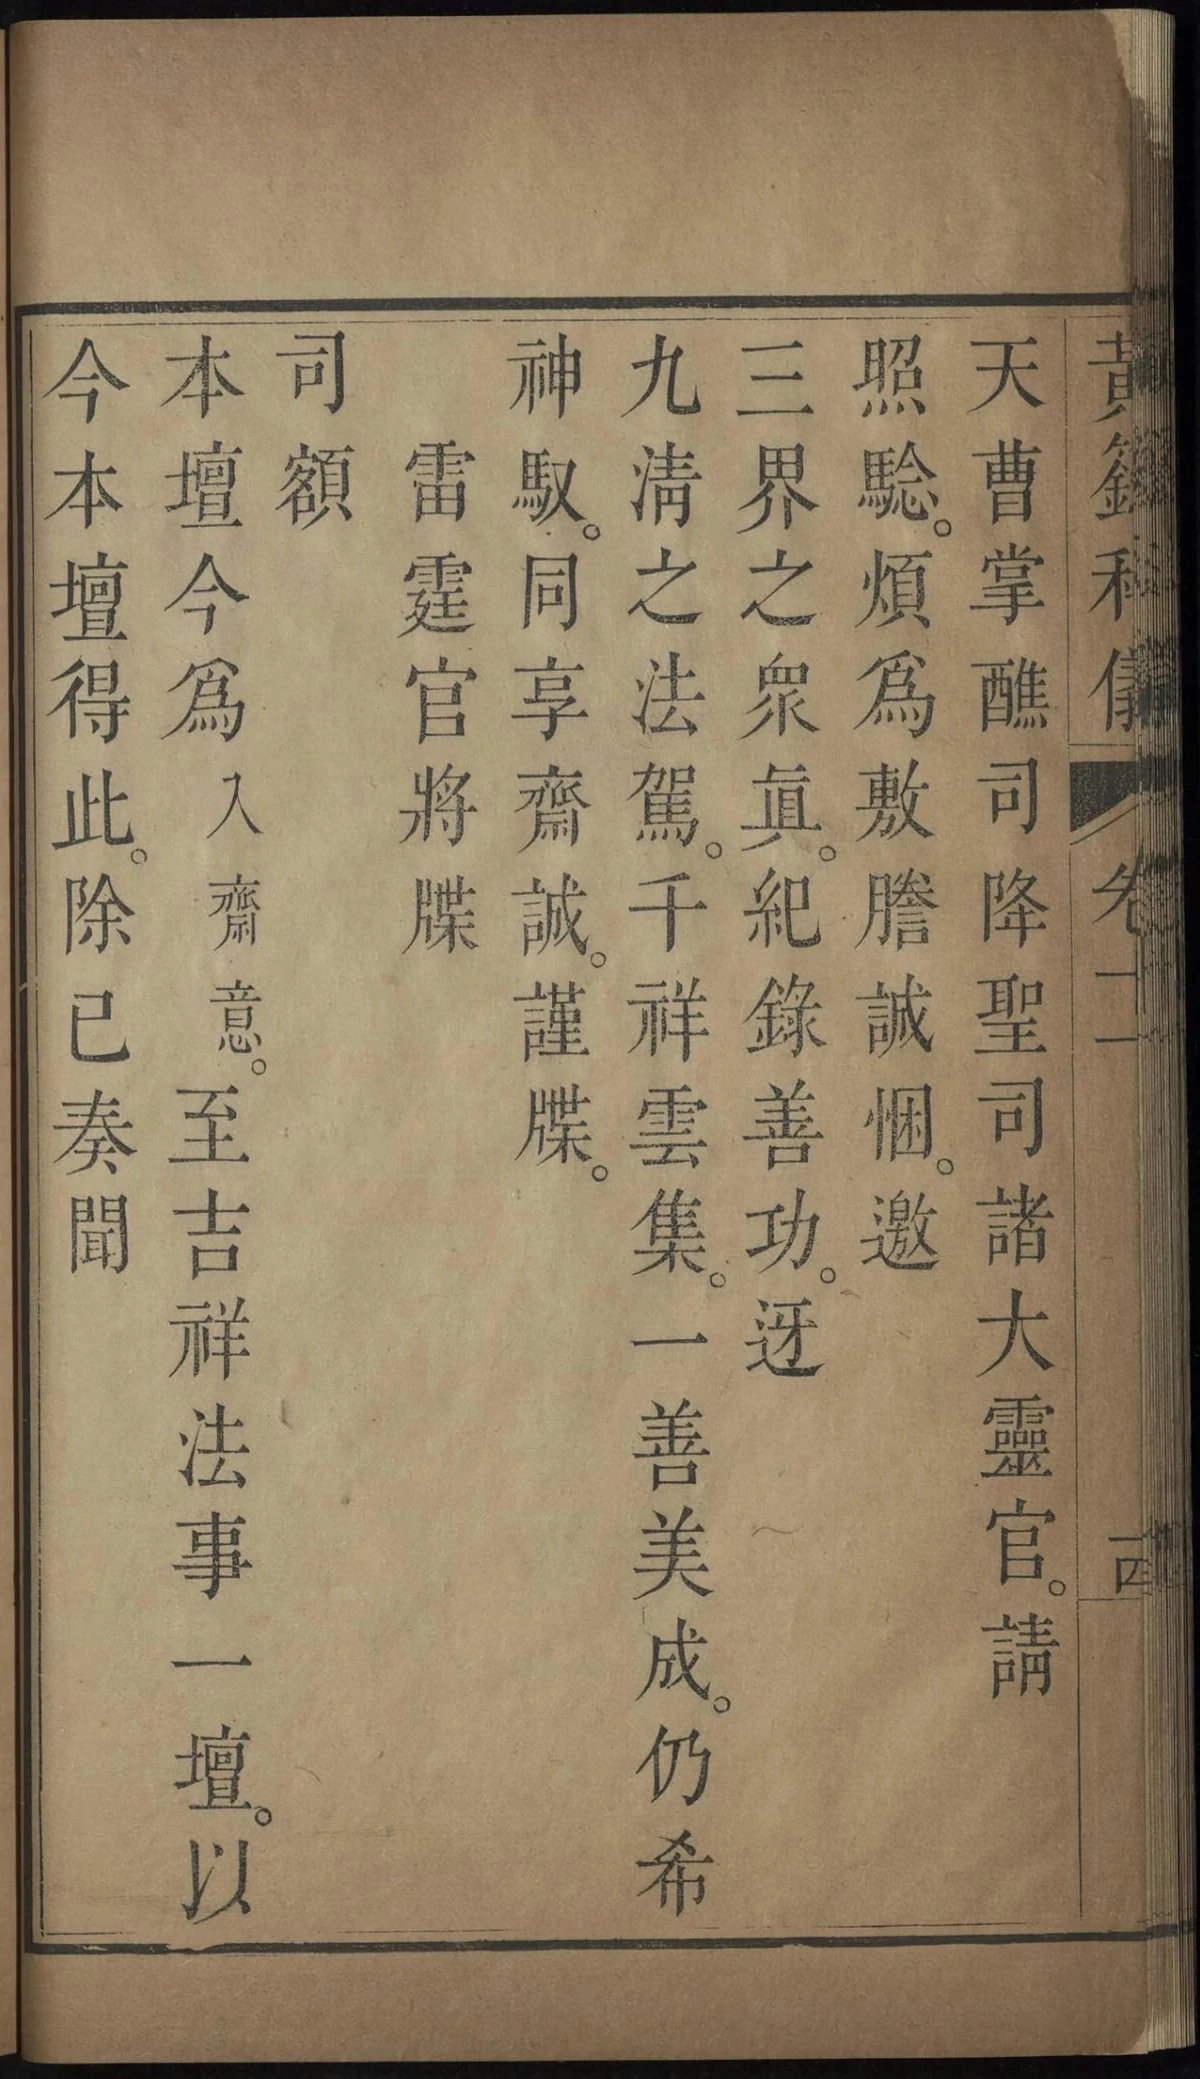 黃籙科儀 卷十二 十四
天曹掌醮司降聖司諸大靈官。請
照騐。煩爲敷謄誠悃。邀
三界之衆眞。紀錄善功。迓
九淸之法駕。千祥雲集。一善美成。仍希
神馭。同享齋誠。謹牒。
雷霆官將牒
司額
本壇今爲入齋意。至吉祥法事一壇。以
今本壇得此。除已奏聞